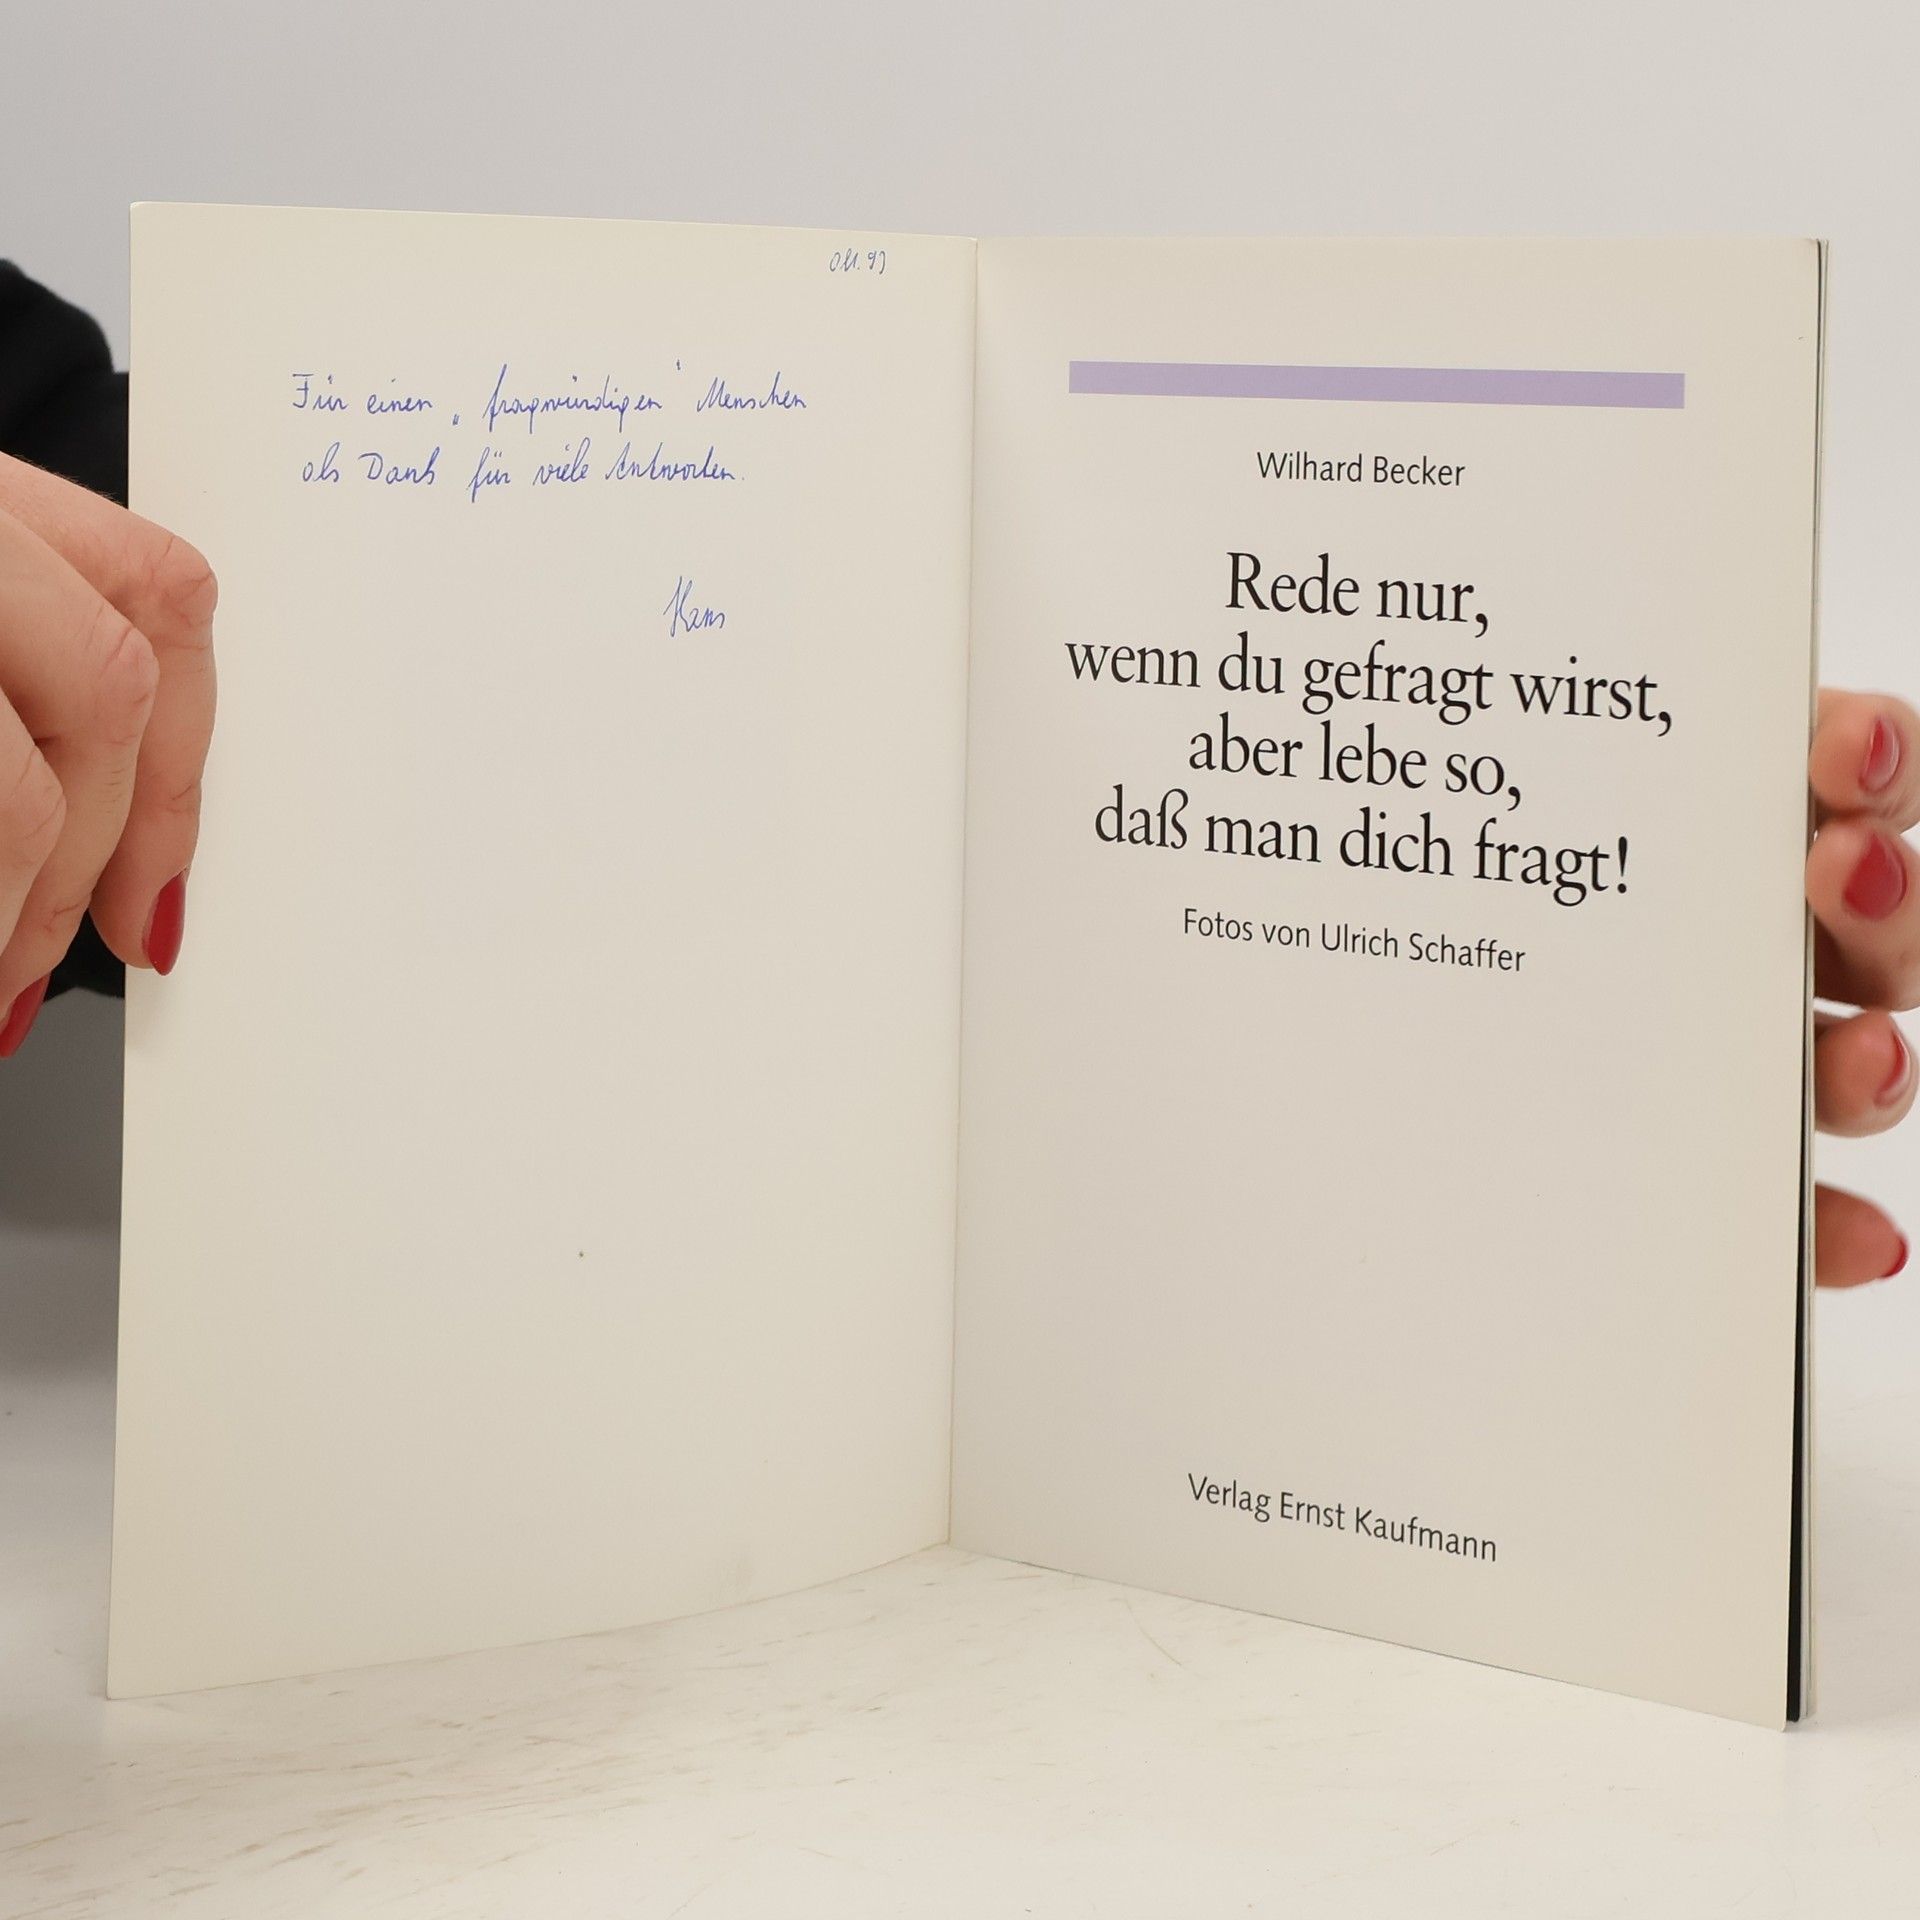 Okt. 93
Für einen „fragwürdigen" Menschen
als Dank für viele Antworten.
Hans
Wilhard Becker
Rede nur,
wenn du gefragt wirst,
aber lebe so,
daß man dich fragt!
Fotos von Ulrich Schaffer
Verlag Ernst Kaufmann